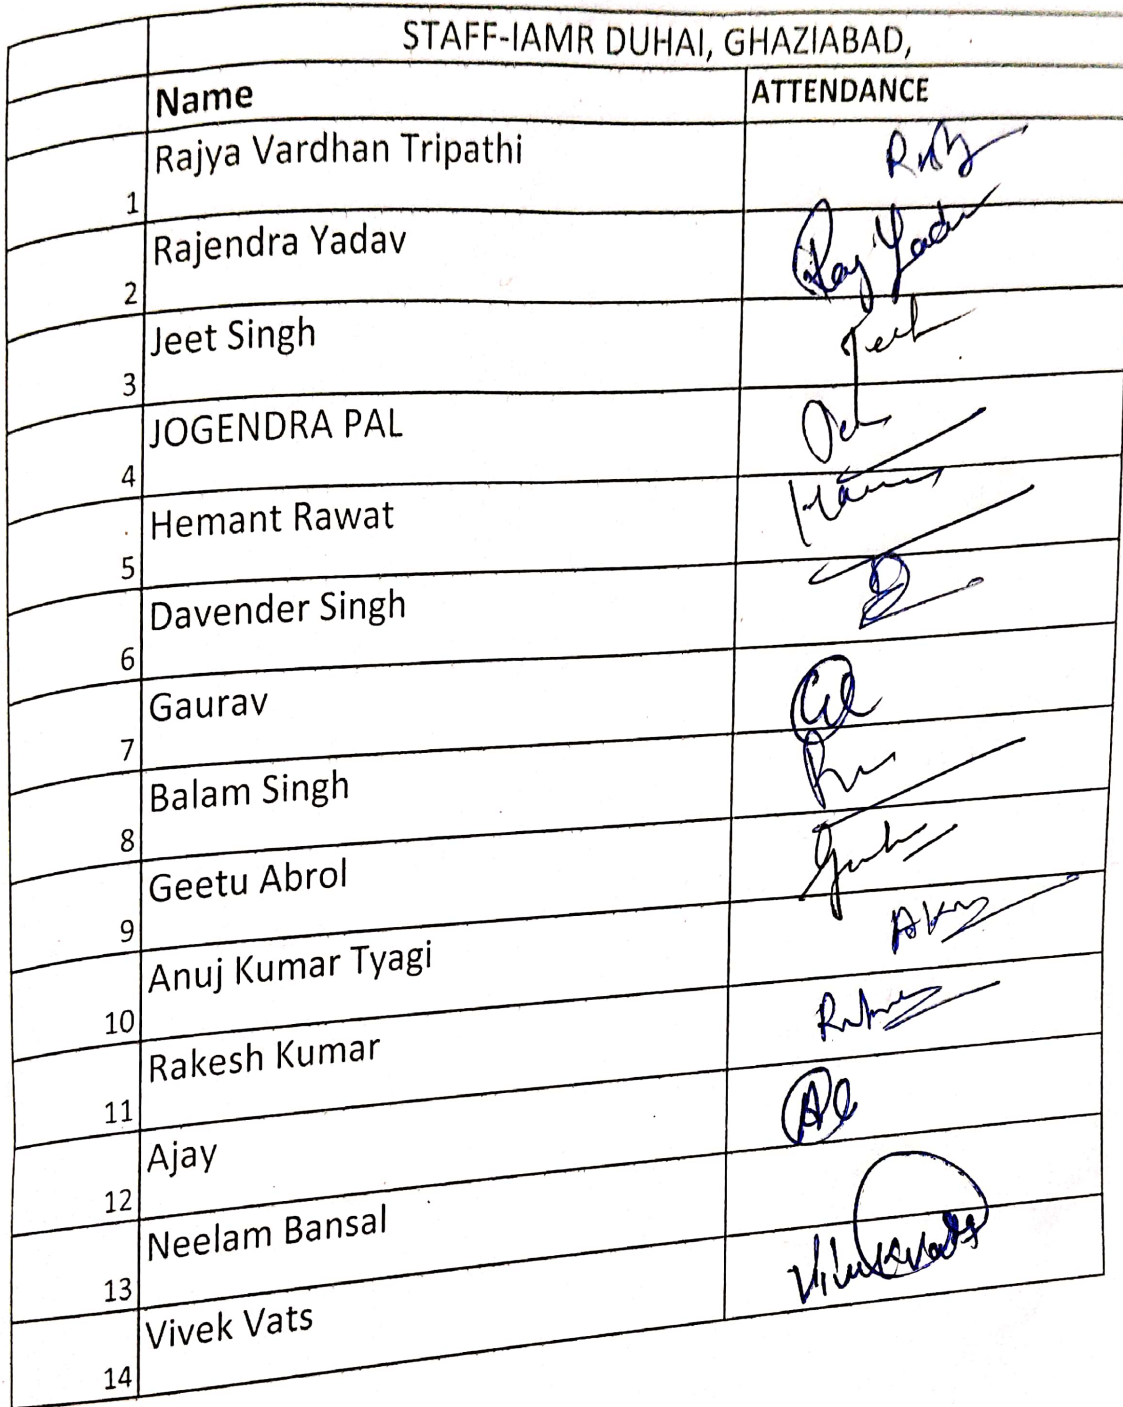 STAFF-IAMR DUHAI, GHAZIABAD,
Name ATTENDANCE
1 Rajya Vardhan Tripathi
2 Rajendra Yadav Raj Yadav
3 Jeet Singh Jeet
4 JOGENDRA PAL
5 Hemant Rawat
6 Davender Singh
7 Gaurav
8 Balam Singh
9 Geetu Abrol
10 Anuj Kumar Tyagi
11 Rakesh Kumar
12 Ajay
13 Neelam Bansal
14 Vivek Vats Vivek Vats